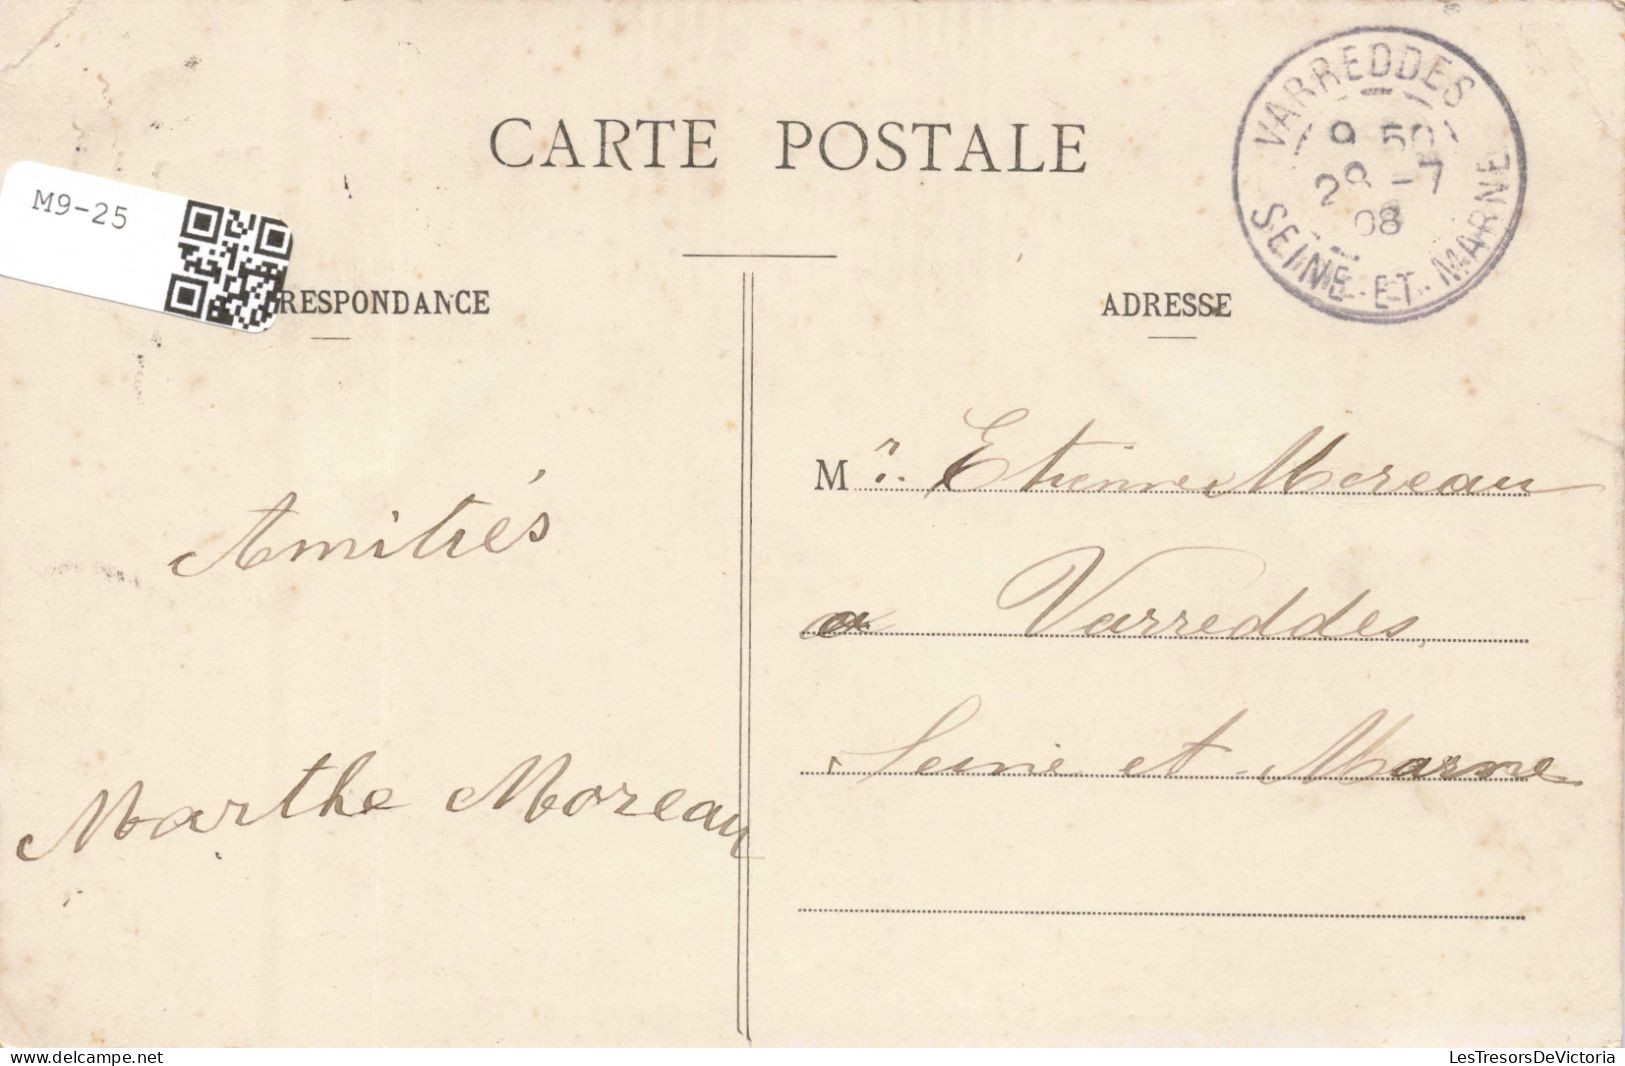 CARTE POSTALE
M9-25
RESPONDANCE
ADRESSE
VARREDDES
9 50
28 -7
08
SEINE-ET-MARNE
Amitiés
Marthe Moreau
Mr. Etienne Moreau
a Varreddes,
Seine et Marne
www.delcampe.net
LesTresorsDeVictoria